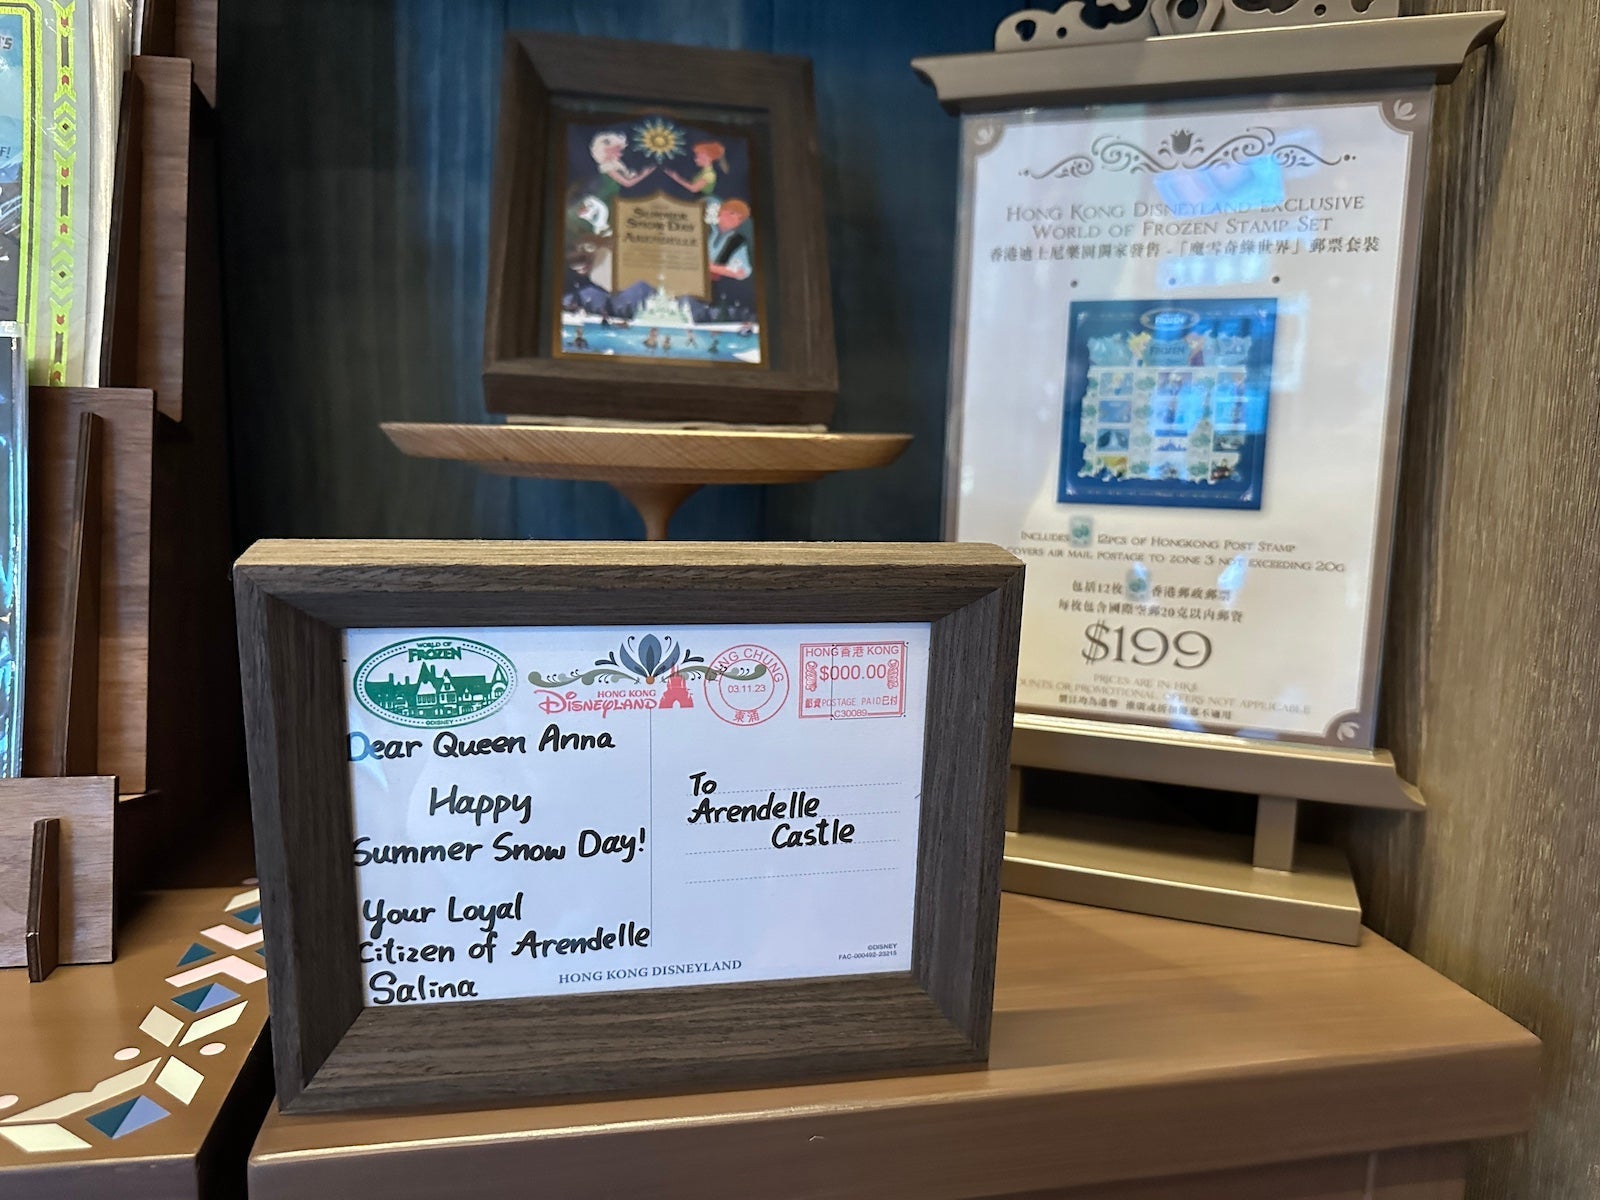 SUMMER
SNOW DAY
ARENDELLE
HONG KONG DISNEYLAND EXCLUSIVE
WORLD OF FROZEN STAMP SET
香港迪士尼樂園獨家發售 - 「魔雪奇緣世界」郵票套裝
FROZEN
INCLUDES 12PCS OF HONGKONG POST STAMP
COVERS AIR MAIL POSTAGE TO ZONE 3 NOT EXCEEDING 20G
包括12枚 香港郵政郵票
每枚包含國際空郵20克以內郵資
$199
PRICES ARE IN HK$
OR PROMOTIONAL OFFERS NOT APPLICABLE
價目均為港幣 推廣或折扣優惠不適用
WORLD OF
FROZEN
©DISNEY
HONG KONG
DISNEYLAND
NG CHUNG
03.11.23
東涌
HONG 香港 KONG
$000.00
郵資 POSTAGE PAID 已付
C30089
Dear Queen Anna
Happy
Summer Snow Day!
Your Loyal
Citizen of Arendelle
Salina
To
Arendelle
Castle
HONG KONG DISNEYLAND
©DISNEY
FAC-000492-23215